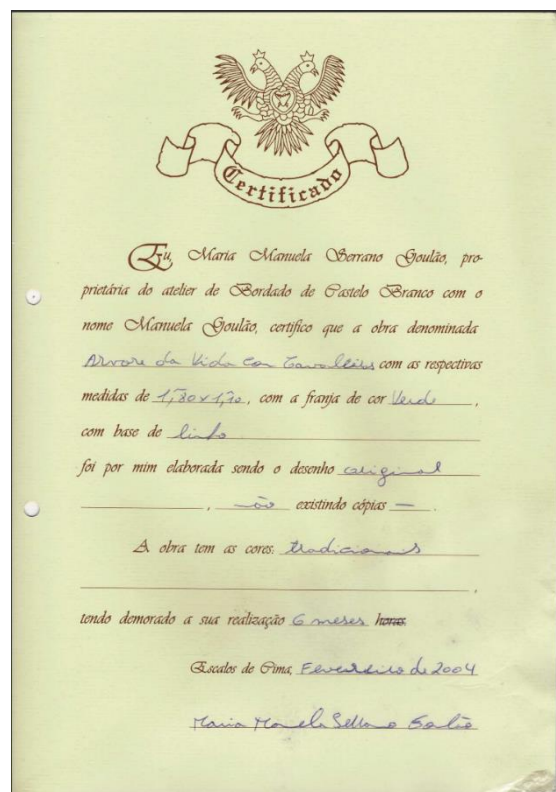 Certificado
Eu, Maria Manuela Serrano Goulão, pro-
prietária do atelier de Bordado de Castelo Branco com o
nome Manuela Goulão, certifico que a obra denominada
Arvore da Vida com Cavaleiros com as respectivas
medidas de 1,80x1,70, com a franja de cor Verde,
com base de linho
foi por mim elaborada sendo o desenho original
, não existindo cópias —.
A obra tem as cores: tradicionais
,
tendo demorado a sua realização 6 meses horas
Escalos de Cima, Fevereiro de 2004
Maria Manuela Serrano Goulão